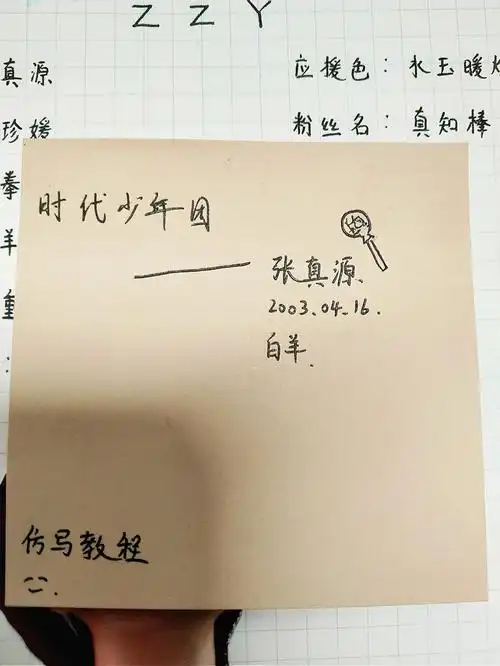 ZZY
真源
应援色：水玉暖
珍媛
粉丝名：真知棒
拳
羊
重
：
时代少年团
——张真源
2003.04.16.
白羊.
仿写教程